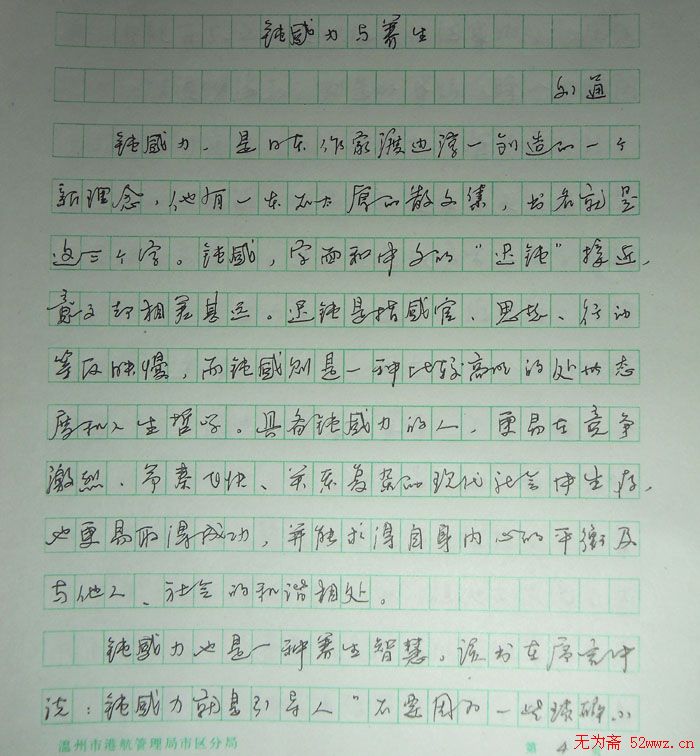 钝感力与养生
刘通
钝感力，是日本作家渡边淳一创造的一个
新理念，他有一本不太厚的散文集，书名就是
这三个字。钝感，字面和中文的“迟钝”接近，
意义却相差甚远。迟钝是指感官、思想、行动
等反映慢，而钝感则是一种比较高明的处世态
度和人生哲学。具备钝感力的人，更易在竞争
激烈、节奏飞快、关系复杂的现代社会中生存，
也更易取得成功，并能求得自身内心的平衡及
与他人、社会的和谐相处。
钝感力也是一种养生智慧。该书在序言中
说：钝感力就是引导人“不要因为一些琐碎小
温州市港航管理局市区分局
第 4
无为斋 52wwz.cn